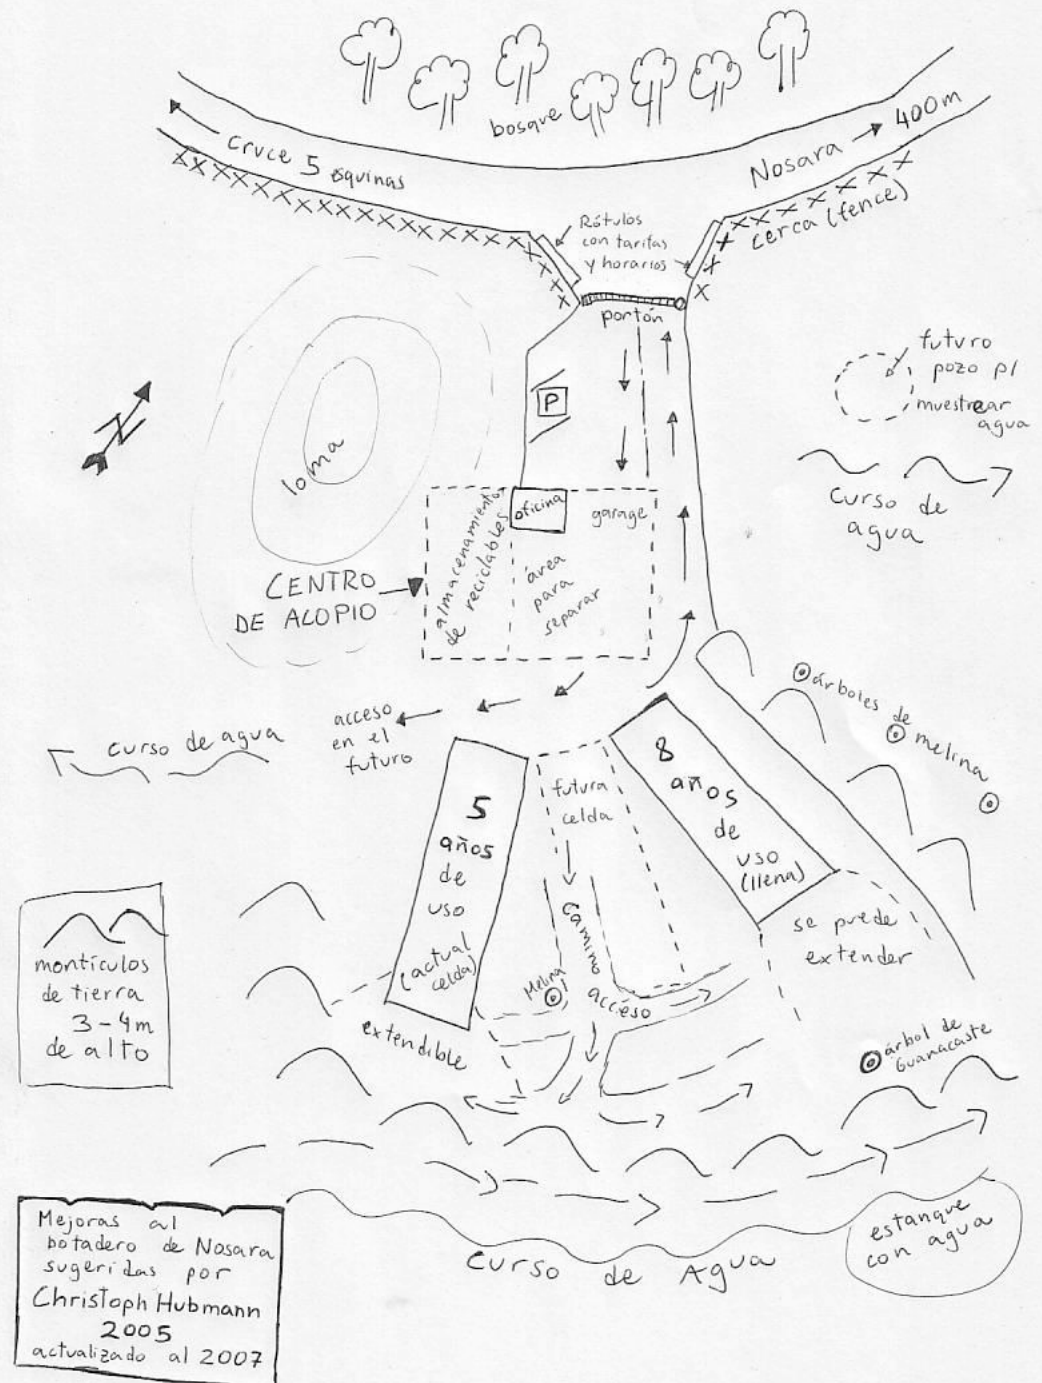 bosque
Cruce 5 esquinas
Nosara → 400m
cerca (fence)
Rótulos
con tarifas
y horarios
portón
futuro
pozo p/
muestrear
agua
P
N
loma
curso de
agua
oficina
garage
almacenamiento
de reciclables
área
para
separar
CENTRO
DE ACOPIO
árboles de
melina
acceso
en el
futuro
curso de agua
5
años
de
uso
(actual
celda)
futura
celda
8
años
de
uso
(llena)
se puede
extender
montículos
de tierra
3-4m
de alto
Camino
acceso
Melina
extendible
árbol de
Guanacaste
estanque
con agua
Curso de Agua
Mejoras al
botadero de Nosara
sugeridas por
Christoph Hubmann
2005
actualizado al 2007